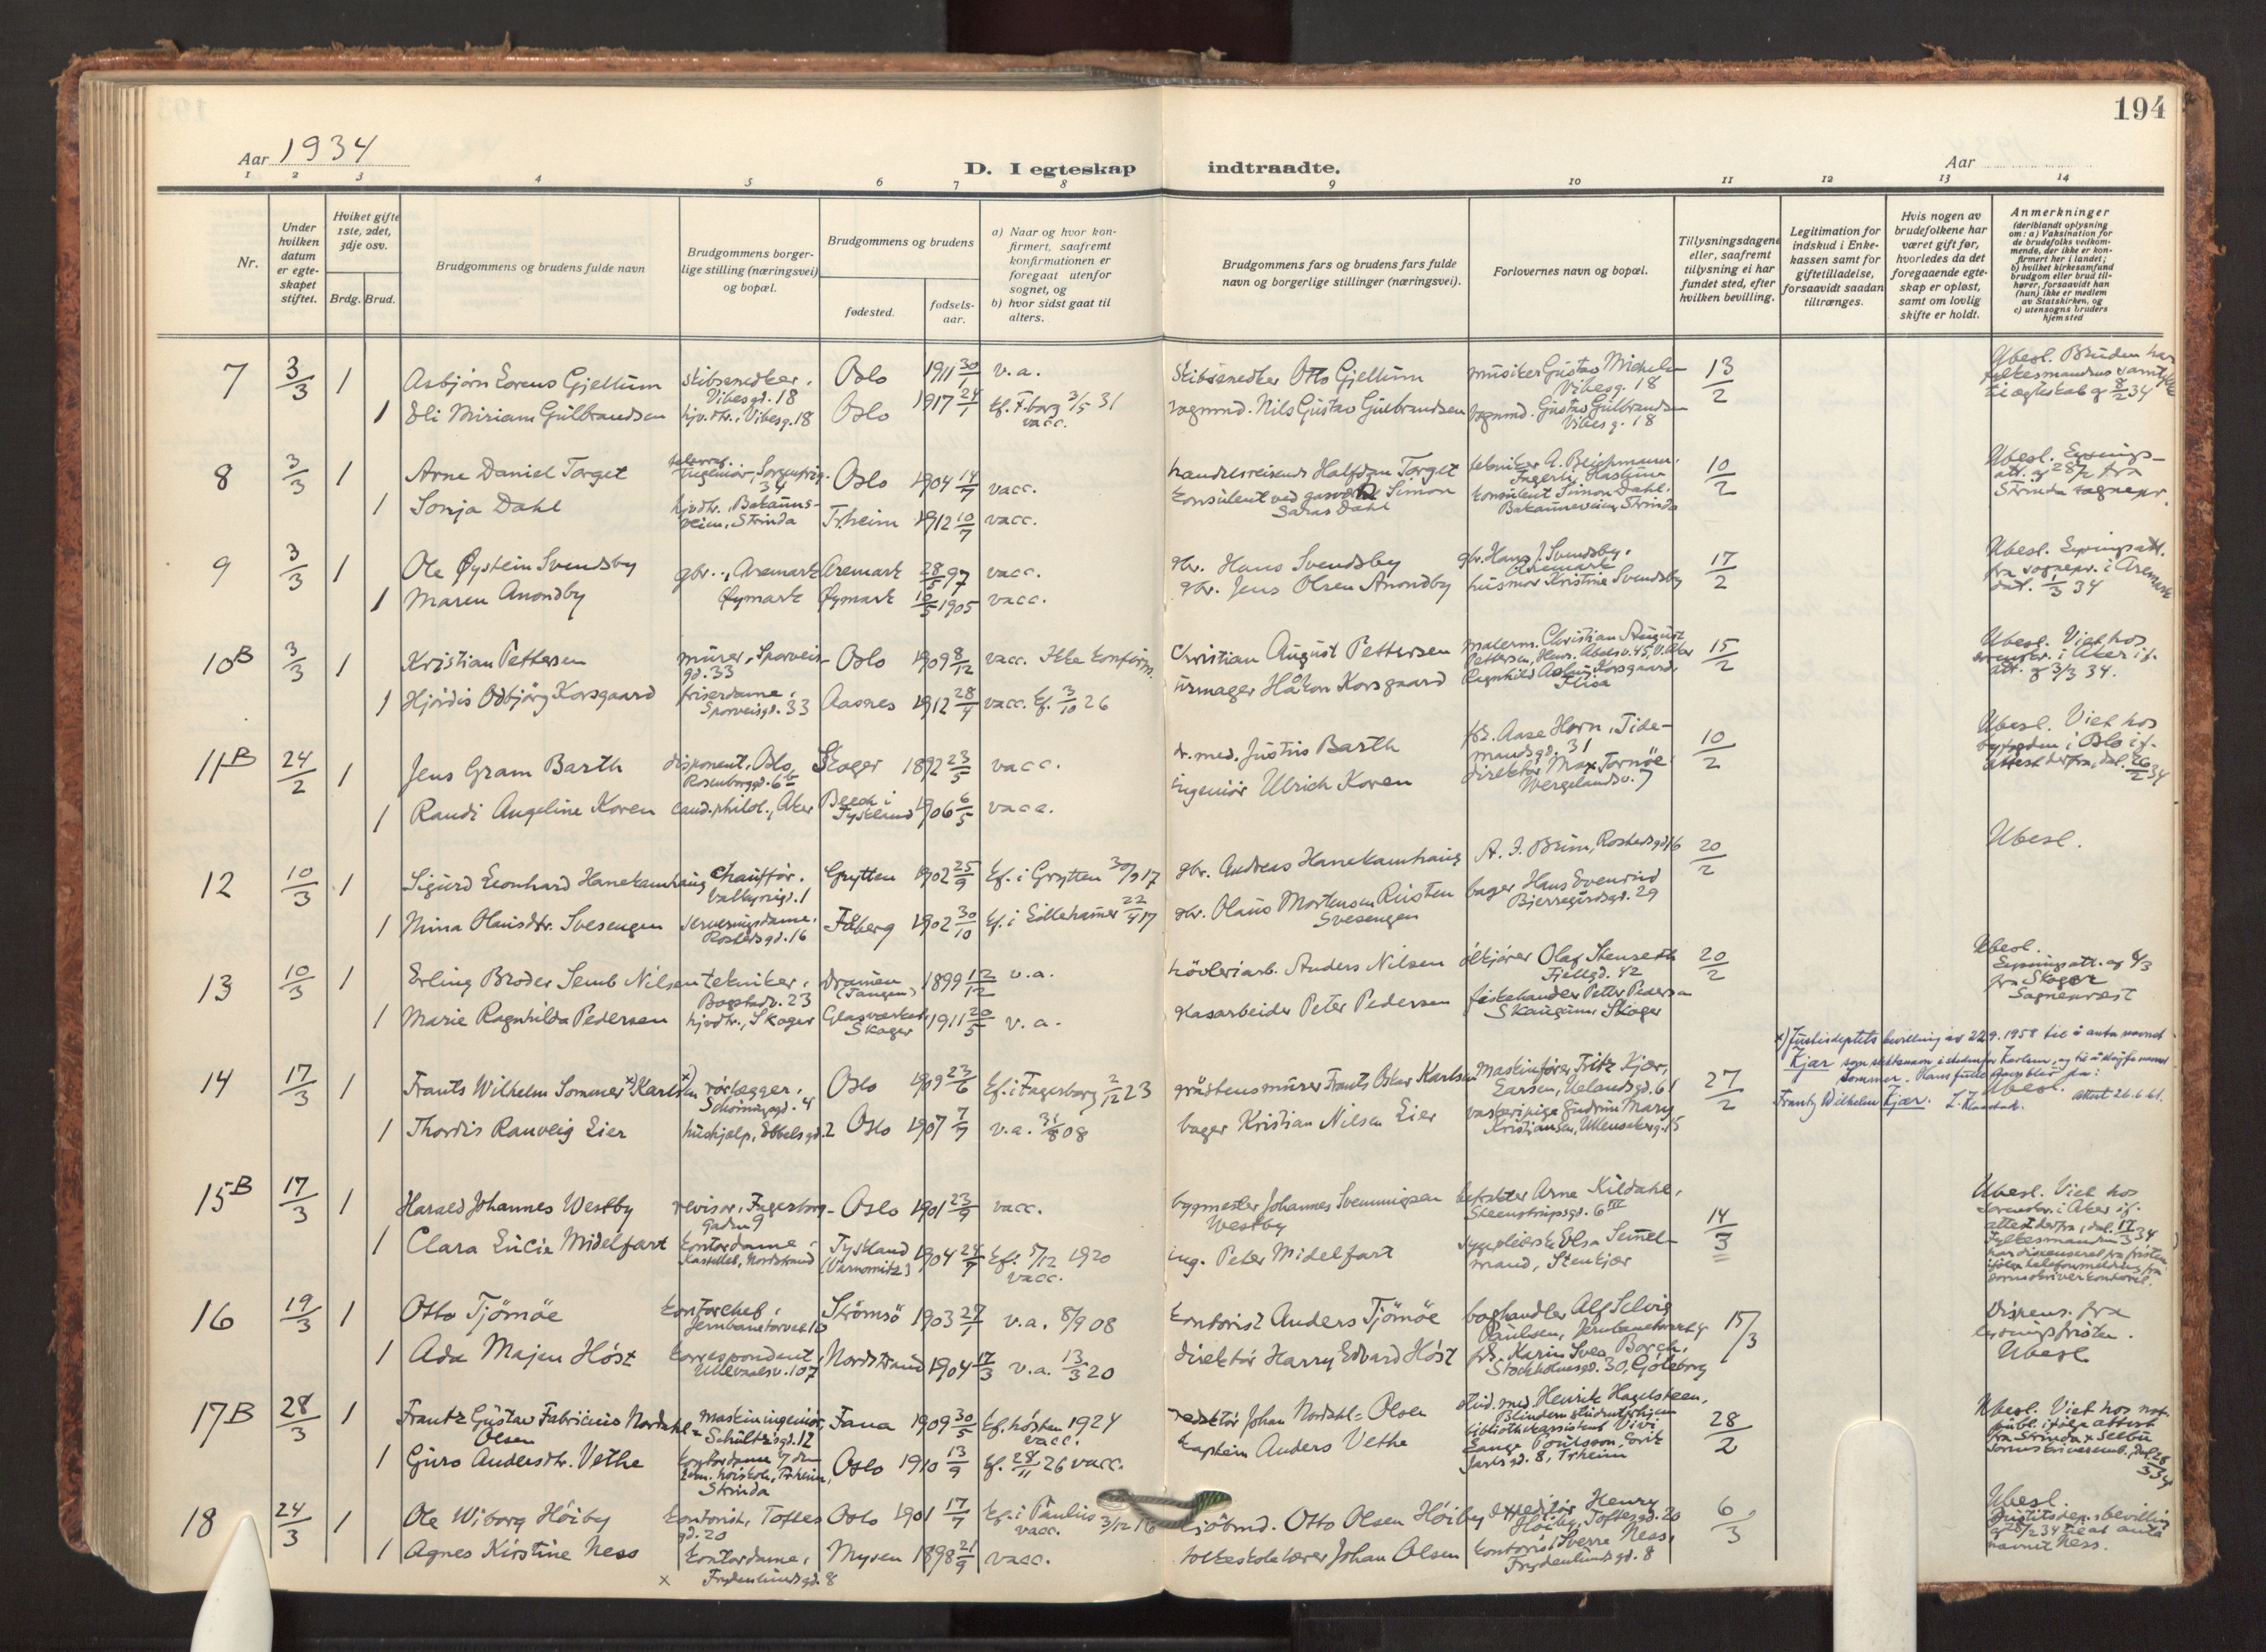 194
Aar 1934
D. I egteskap indtraadte.
Aar
1 2 3 4 5 6 7 8 9 10 11 12 13 14
Nr.
Under hvilken datum er egteskapet stiftet.
Hviket gifte 1ste, 2det, 3dje osv.
Brdg. Brud.
Brudgommens og brudens fulde navn
Brudgommens borgerlige stilling (næringsvei) og bopæl.
Brudgommens og brudens
fødested.
fødselsaar.
a) Naar og hvor konfirmert, saafremt konfirmationen er foregaat utenfor sognet, og
b) hvor sidst gaat til alters.
Brudgommens fars og brudens fars fulde navn og borgerlige stillinger (næringsvei).
Forlovernes navn og bopæl.
Tillysningsdagene eller, saafremt tillysning ei har fundet sted, efter hvilken bevilling.
Legitimation for indskud i Enkekassen samt for giftetilladelse, forsaavidt saadan tiltrænges.
Hvis nogen av brudefolkene har været gift før, hvorledes da det foregaaende egteskap er opløst, samt om lovlig skifte er holdt.
Anmerkninger
(deriblandt oplysning om: a) Vaksination for de brudefolks vedkommende, der ikke er konfirmert her i landet;
b) hvilket kirkesamfund brudgom eller brud tilhører, forsaavidt han (hun) ikke er medlem av Statskirken, og
c) utensogns bruders hjemsted
7 3/3 1 Asbjørn Lorens Gjellum skibsnedker, Vibesgd. 18 Oslo 1911 30/1 v.a. Skibsnedker Otto Gjellum musiker Gustav Vibesg. 18 13/2
1 Eli Miriam Gulbrandsen hjv.dtr., Vibesg. 18 Oslo 1917 24/1 kf. F.borg 3/5 31 vacc. vognmd. Nils Gustav Gulbrandsen vognmd. Gustav Gulbrandsen Vibesg. 18
Ubesl. Bruden har fylkesmandens samtykke til ægteskab af 8/2 34
8 3/3 1 Arne Daniel Torget ingeniør, Sorgenfrig. 34 Oslo 1904 14/7 vacc. handelsreisende Halfdan Torget tekniker A. Beichmann, Fagerli, Haslum 10/2
1 Sonja Dahl hjvdtr., Bakaunsveien, Strinda Trheim 1912 10/7 vacc. konsulent ved gasverk Simon Dahl konsulent Simon Dahl, Bakauneveien, Strinda
Ubesl. Lysningsatt. af 28/2 fra Strinda sognepr.
9 3/3 1 Ole Øystein Svendsby gbr., Aremark Aremark 28/5 97 vacc. gbr. Hans Svendsby gbr. Hans J. Svendsby, Aremark 17/2
1 Maren Anondby Øymark Øymark 1905 vacc. gbr. Jens Olsen Anondby husmor Kristine Svendsby
Ubesl. Lysningsatt. fra sognepr. i Aremark dat. 1/3 34
10B 3/3 1 Kristian Pettersen murer, Sporveisgd. 33 Oslo 1909 8/12 vacc. Ikke konfirm. Christian August Pettersen malerm. Christian August Pettersen, Henr. Ibsens v. 45, V. Aker 15/2
1 Hjørdis Odbjørg Korsgaard friserdame, Sporveisgd. 33 Aasnes 1912 28/4 vacc. kf. 3/10 26 urmager Håkon Korsgaard Ragnhild Aslaug Korsgaard, Flisa
Ubesl. Viet hos sorenskr. i Aker if. att. af 3/3 34.
11B 24/2 1 Jens Gram Barth disponent, Oslo, Rosenborggd. 6 Skoger 1892 23/5 vacc. dr. med. Justus Barth frk. Aase Horn, Tidemandsgd. 31 10/2
1 Randi Angeline Koren cand. philol., Aker Tyskland 1906 6/5 vacc. ingeniør Ulrich Koren direktør Max Tornöe, Wergelandsv. 7
Ubesl. Viet hos byfogden i Oslo if. attest derfra, dat. 26/2 34
12 10/3 1 Sigurd Leonhard Hanekamhaug chauffør, Valkyrieg. 1 Grytten 1902 25/9 kf. i Grytten 30/9 17 gbr. Andreas Hanekamhaug A. J. Brun, Rostedsgd. 16 20/2
1 Nina Olausdtr. Svesengen serveringsdame, Rostedsgd. 16 Fåberg 1902 30/10 kf. i Lillehamer 22/4 17 gbr. Olaus Mortensen Rusten Svesengen bager Hans Evenrud Bjerregårdsgd. 29
Ubesl.
13 10/3 1 Erling Broder Semb Nilsen tekniker, Bogstadv. 23 Dramen (Tangen) 1899 12/12 v.a. høvleriarb. Anders Nilsen ølkjører Olaf Stenseth Fjellgd. 42 20/2
1 Marie Ragnhilda Pedersen hjvdtr., Skoger Glasværket Skoger 1911 20/5 v.a. Kasarbeider Peter Pedersen fiskehandler Petter Pedersen Skaugum Skoger
Ubesl. Lysningsatt. af 6/3 fra Skoger Sogneprest
14 17/3 1 Frants Wilhelm Sommer x) Karlsen rørlægger, Schøningsgd. 4 Oslo 1909 23/6 kf. i Fagerborg 2/12 23 gråstensmurer Frants Oskar Karlsen Maskinfører Fritz Kjær, Larsen, Uelandsgd. 61 27/2
1 Thordis Ranveig Lier hushjelp, Ebbelsgd. 2 Oslo 1907 7/7 v.a. 31/8 08 bager Kristian Nilsen Lier vaskeripige Gudrun Mary Kristjansen, Ullensakerg. 15
x) Justisdeptets bevilling av 22.9.1958 til å anta navnet
Kjær som slektsnavn i stedenfor Karlsen, og til å sløyfe navnet
Sommer. Hans fulde navn blir da:
Frantz Wilhelm Kjær. Ubesl. attest 26.6.61.
15B 17/3 1 Harald Johannes Westby revisor, Fagerborggaden 9 Oslo 1901 23/9 vacc. bygmester Johannes Svenningsen Westby Arne Kildahl, Steenstrupsgd. 6 III 14/3
1 Clara Lucie Midelfart kontordame, Kastellet, Nordstrand Tyskland 1904 24/7 kf. 5/12 1920 vacc. ing. Peter Midelfart sygepleierske Elsa Semelmand, Stenkjær
Ubesl. Viet hos sorenskr. i Aker if. attest derfra, dat. 17/3 34 Fylkesmanden har dispenseret fra fristen ifølge telefonmelding fra sorenskriverkontoret.
16 19/3 1 Otto Tjömöe kontorchef, Jernbanetorvet 10 Strømsö 1903 27/1 v.a. 8/9 08 kontorist Anders Tjömöe boghandler Alf Selvig Paulsen, Jernbanetorvet 9 15/3
1 Ada Majen Höst korrespondent, Ullevaalsv. 107 Nordstrand 1904 17/3 v.a. 13/3 20 direktør Harry Edvard Höst frk. Karin Svea Borch, Stockholmsgd. 30, Gøteborg
Dispens. fra lysningsfristen. Ubesl.
17B 28/3 1 Frantz Gustav Fabricius Nordahl-Olsen maskiningeniør, Schultzgd. 12 Fana 1909 30/5 kf. høsten 1924 vacc. redaktør Johan Nordahl-Olsen stud. med. Henrik Hagelsteen, Blindern studenterhjem 28/2
1 Guro Andersdtr. Vethe kontordame v/den tekn. høiskole, Trheim, Strinda Oslo 1910 13/9 kf. 28/11 26 vacc. kaptein Anders Vethe bibliotekassistent Vivi Lange Poulsson, Eirik Jarlsgd. 8, Trheim
Ubesl. Viet hos not. publ. ifølge attest fra Strinda & Selbu sorenskriveremb., dat. 28/3 34
18 24/3 1 Ole Wiborg Höiby kontorist, Toftesgd. 20 Oslo 1901 17/7 kf. i Paulus 3/12 16 vacc. kjöbmd. Otto Olsen Höiby expeditör Henry Höiby, Toftesgd. 20 6/3
1 Agnes Kirstine Ness kontordame, Frydenlundsgd. 8 Mysen 1898 21/9 vacc. folkeskolelærer Johan Olsen kontorist Sverre Ness, Frydenlundsgd. 8
x
Ubesl. Justitsdep.s bevilling af 28/2 34 til at anta navnet Ness.